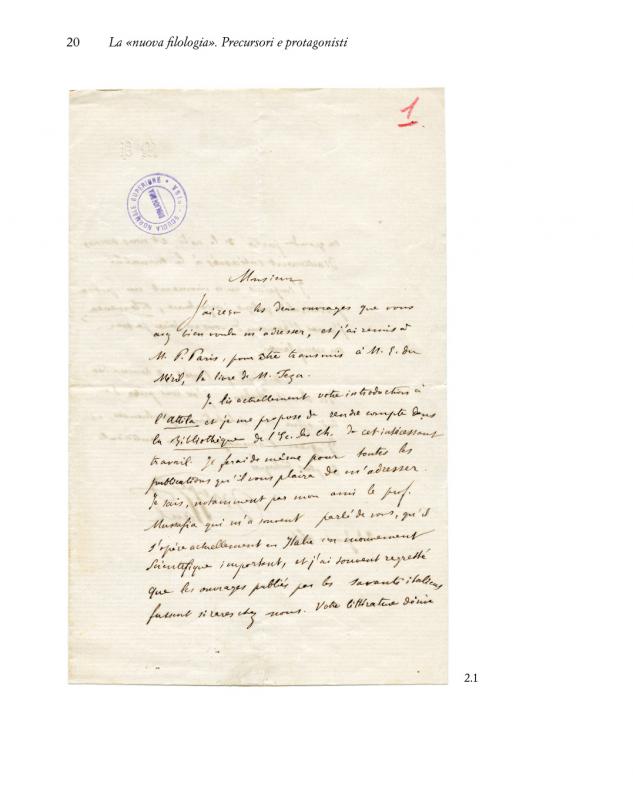 20 La «nuova filologia». Precursori e protagonisti
1
SCUOLA NORMALE SUPERIORE • PISA
BIBLIOTECA
Monsieur
J'ai reçu les deux ouvrages que vous
avez bien voulu m'adresser, et j'ai remis à
M. P. Paris, pour être transmis à M. E. du
Méril, le livre de M. Teza.
Je lis actuellement votre introduction à
l'Attila et je me propose de rendre compte dans
la Bibliothèque de l'Ec. des Ch. de cet intéressant
travail. Je ferai de même pour toutes les
publications qu'il vous plaira de m'adresser.
Je sais, notamment par mon ami le prof.
Mussafia qui m'a souvent parlé de vous, qu'il
s'opère actuellement en Italie un mouvement
scientifique important, et j'ai souvent regretté
que les ouvrages publiés par les savants italiens
fussent si rares chez nous. Votre littérature
2.1